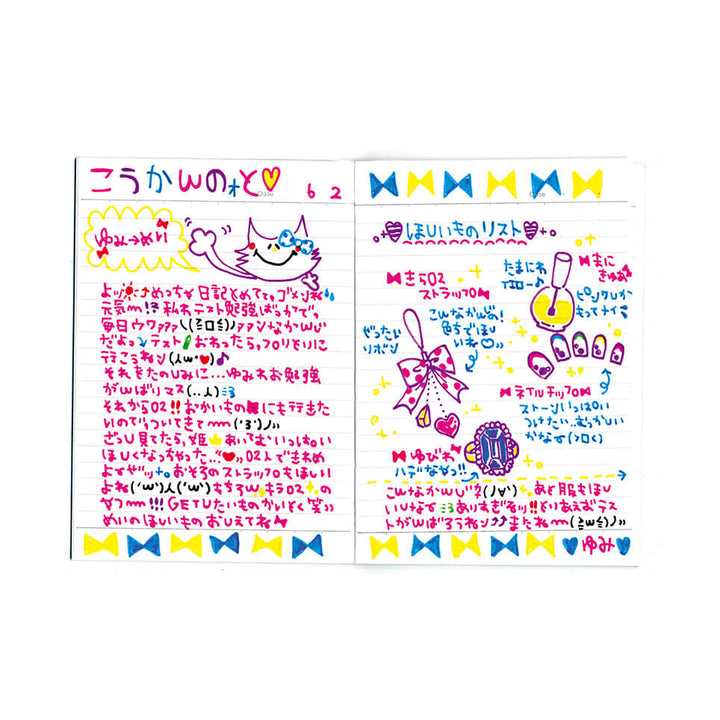 こうかんのォと♡
6 2
ゆみ→めい
よッ⤴めっちゃ日記とめててゴメンね
元気m!?私わテスト勉強ばっかでっ
毎日ウワァァァ\(≧ロ≦)ノァァンなかんじ
だよっテストおわったらっプリとりに
行こうねッ(人'w'♥)♪
それをたのしみに…ゆみわお勉強
がんばりマス(..人)
それから02!!おかいものにも行きた
いのでっついてきてm('3')ノ
ざっし見てたら,姫あいてむいっぱい
ほしくなっちゃった..“♡»02人できわめ
よぜッ+。おそろのストラップもほしい
よね('w')人('w')もちろんキラ02+。の
やつm!!!GETしたいものかいとく笑»
めいのほしいものおしえてね
ほしいものリスト
きら02
ストラップ
こんなかんじの!
色ちでほし
いね♡»
ぜったい
リボン
たまにわ
イエロー♪
まに
きゅあ
ピンクしか
もってナイ
ネイルチップ
ストーンいっぱい
つけたい..むずかしい
かなぁ(>ロく)
ゆびわ
ハデなやつ!!
こんなかんじ?(ノ∀')+。あと服もほし
いしなぁありすぎるッ!!とりあえずテス
トがんばろうねッ⤴⤴またねm(≧w≦)ノ»
♥ゆみ♥